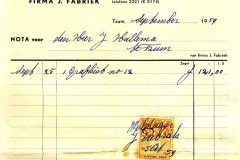 FIRMA J. FABRIEK
telefoon 2221 (K 5174)
Tzum, September 1959
NOTA voor den Heer J Hellema
te Tzum
van firma J. Fabriek
Sept 25 1 Grafkist no 12 f 121.00
J Fabriek
59